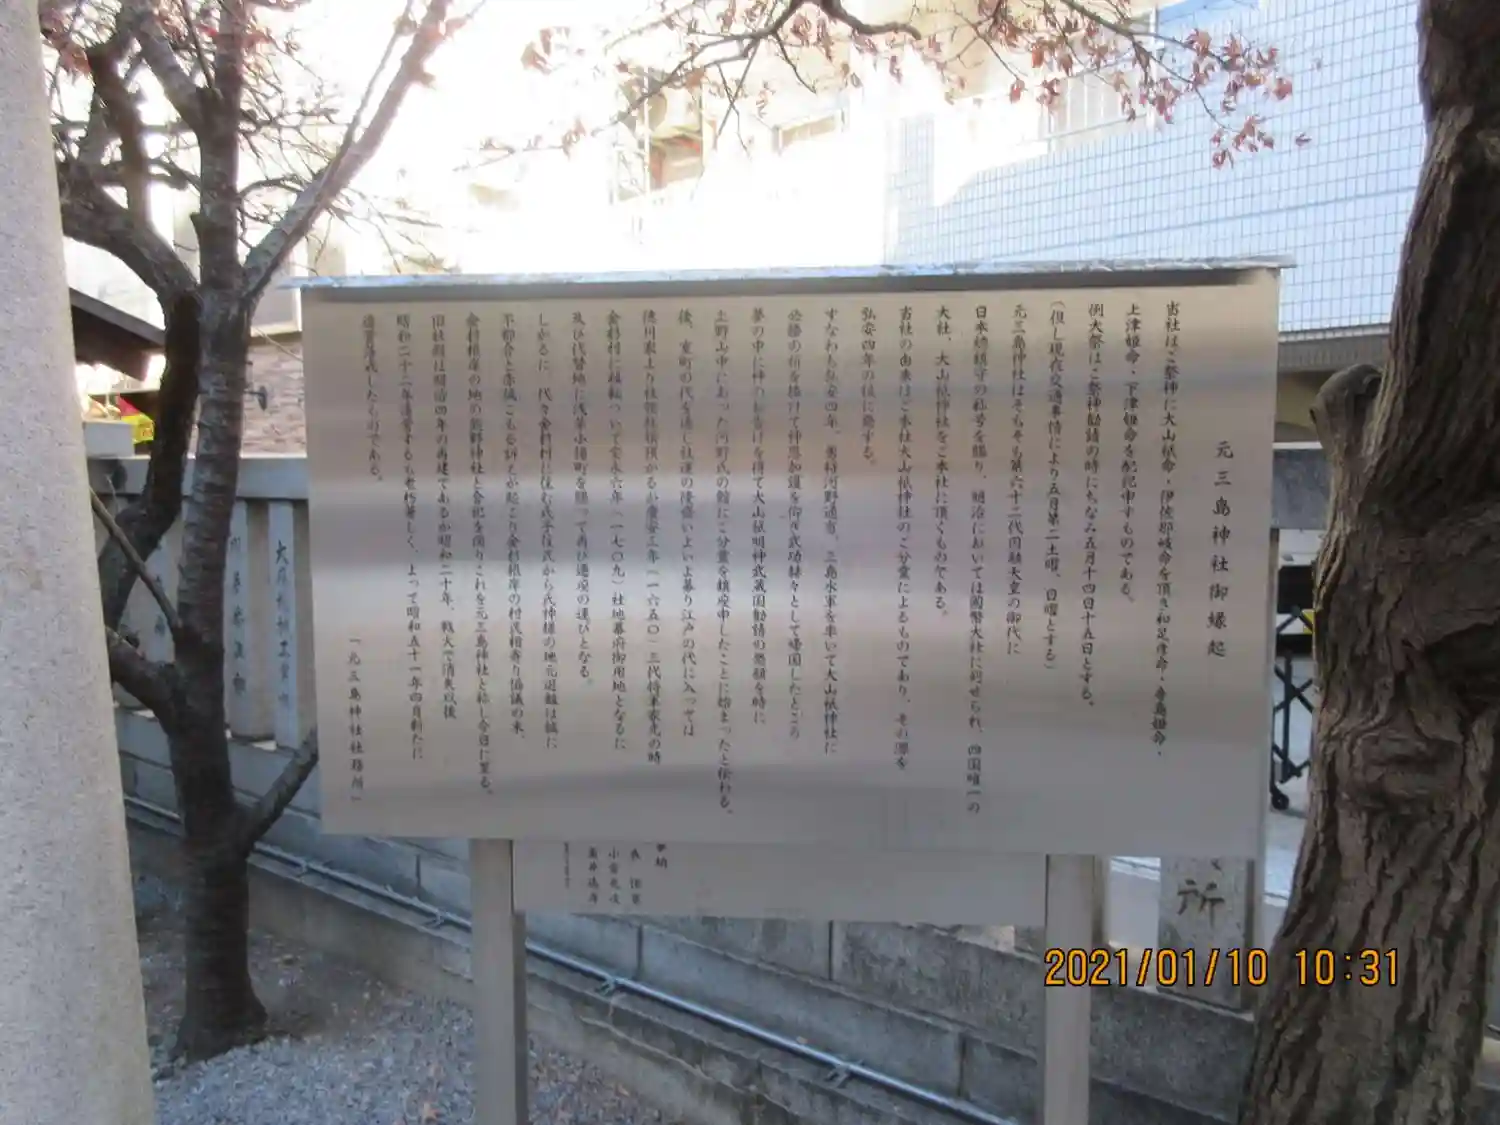 元三島神社御縁起
当社はご祭神に大山祇命・伊佐那岐命を頂き和足彦命・身島姫命・
上津姫命・下津姫命を配祀申すものである。
例大祭はご祭神勧請の時にちなみ五月十四日十五日とする。
(但し現在交通事情により五月第二土曜、日曜とする)
元三島神社はそもそも第六十二代円融天皇の御代に
日本総鎮守の称号を賜り、明治においては国幣大社に列せられ、四国唯一の
大社、大山祇神社をご本社に頂くものである。
当社の由来はご本社大山祇神社のご分霊によるものであり、その源を
弘安四年の役に発する。
すなわち弘安四年、勇将河野通有、三島水軍を率いて大山祇神社に
必勝の祈を捧げて神恩加護を仰ぎ武功赫々として帰国したところ
夢の中に神のお告げを得て大山祇明神武蔵国勧請の懇願を時に
上野山中にあった河野氏の館にご分霊を鎮座申したことに始まったと伝わる。
後、室町の代を通し社運の隆盛いよいよ募り江戸の代に入っては
徳川家より社領社領預かるが慶安三年(一六五〇)三代将軍家光の時
金杉村に移転ついで宝永六年(一七〇九)社地幕府御用地となるに
及び代替地に浅草小揚町を賜って再び遷座の運びとなる。
しかるに、代々金杉村に住む氏子住民から氏神様の地元遊離は誠に
不都合と赤誠こもる訴えが起こり金杉根岸の村民相寄り協議の末、
金杉根岸の地の熊野神社と合祀を図りこれを元三島神社と称し今日に至る。
旧社殿は明治四年の再建であるが昭和二十年、戦火で消失以後
昭和二十三年造営するも老朽著しく、よって昭和五十一年四月新たに
造営落成したものである。
「元三島神社社務所」
奉納
所
2021/01/10 10:31